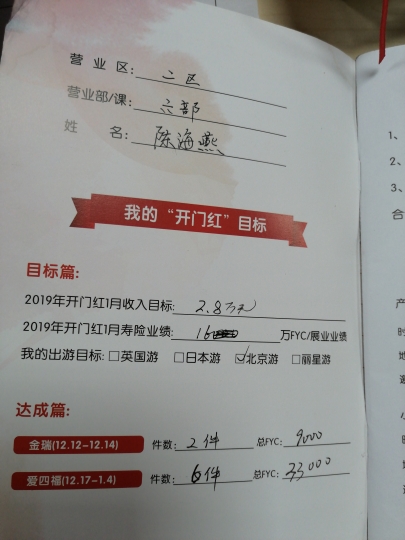 营业区: 二区
营业部/课: 六部
姓名: 陈海燕
我的“开门红”目标
目标篇:
2019年开门红1月收入目标: 2.8万元
2019年开门红1月寿险业绩: 16 万FYC/展业业绩
我的出游目标: □英国游 □日本游 ☑北京游 □丽星游
达成篇:
金瑞(12.12-12.14) 件数: 2件 总FYC: 9000
爱四福(12.17-1.4) 件数: 6件 总FYC: 33000
1、
2、
3、
合
产
时
地